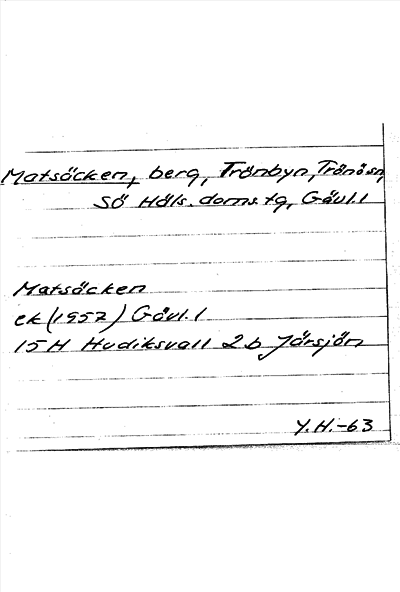 Matsäcken, berg, Trönbyn, Trönösn,
Sö Häls. doms.tg, Gävl.l
Matsäcken
ek (1957) Gävl.l
15H Hudiksvall 2b Järsjön
Y.H.-63